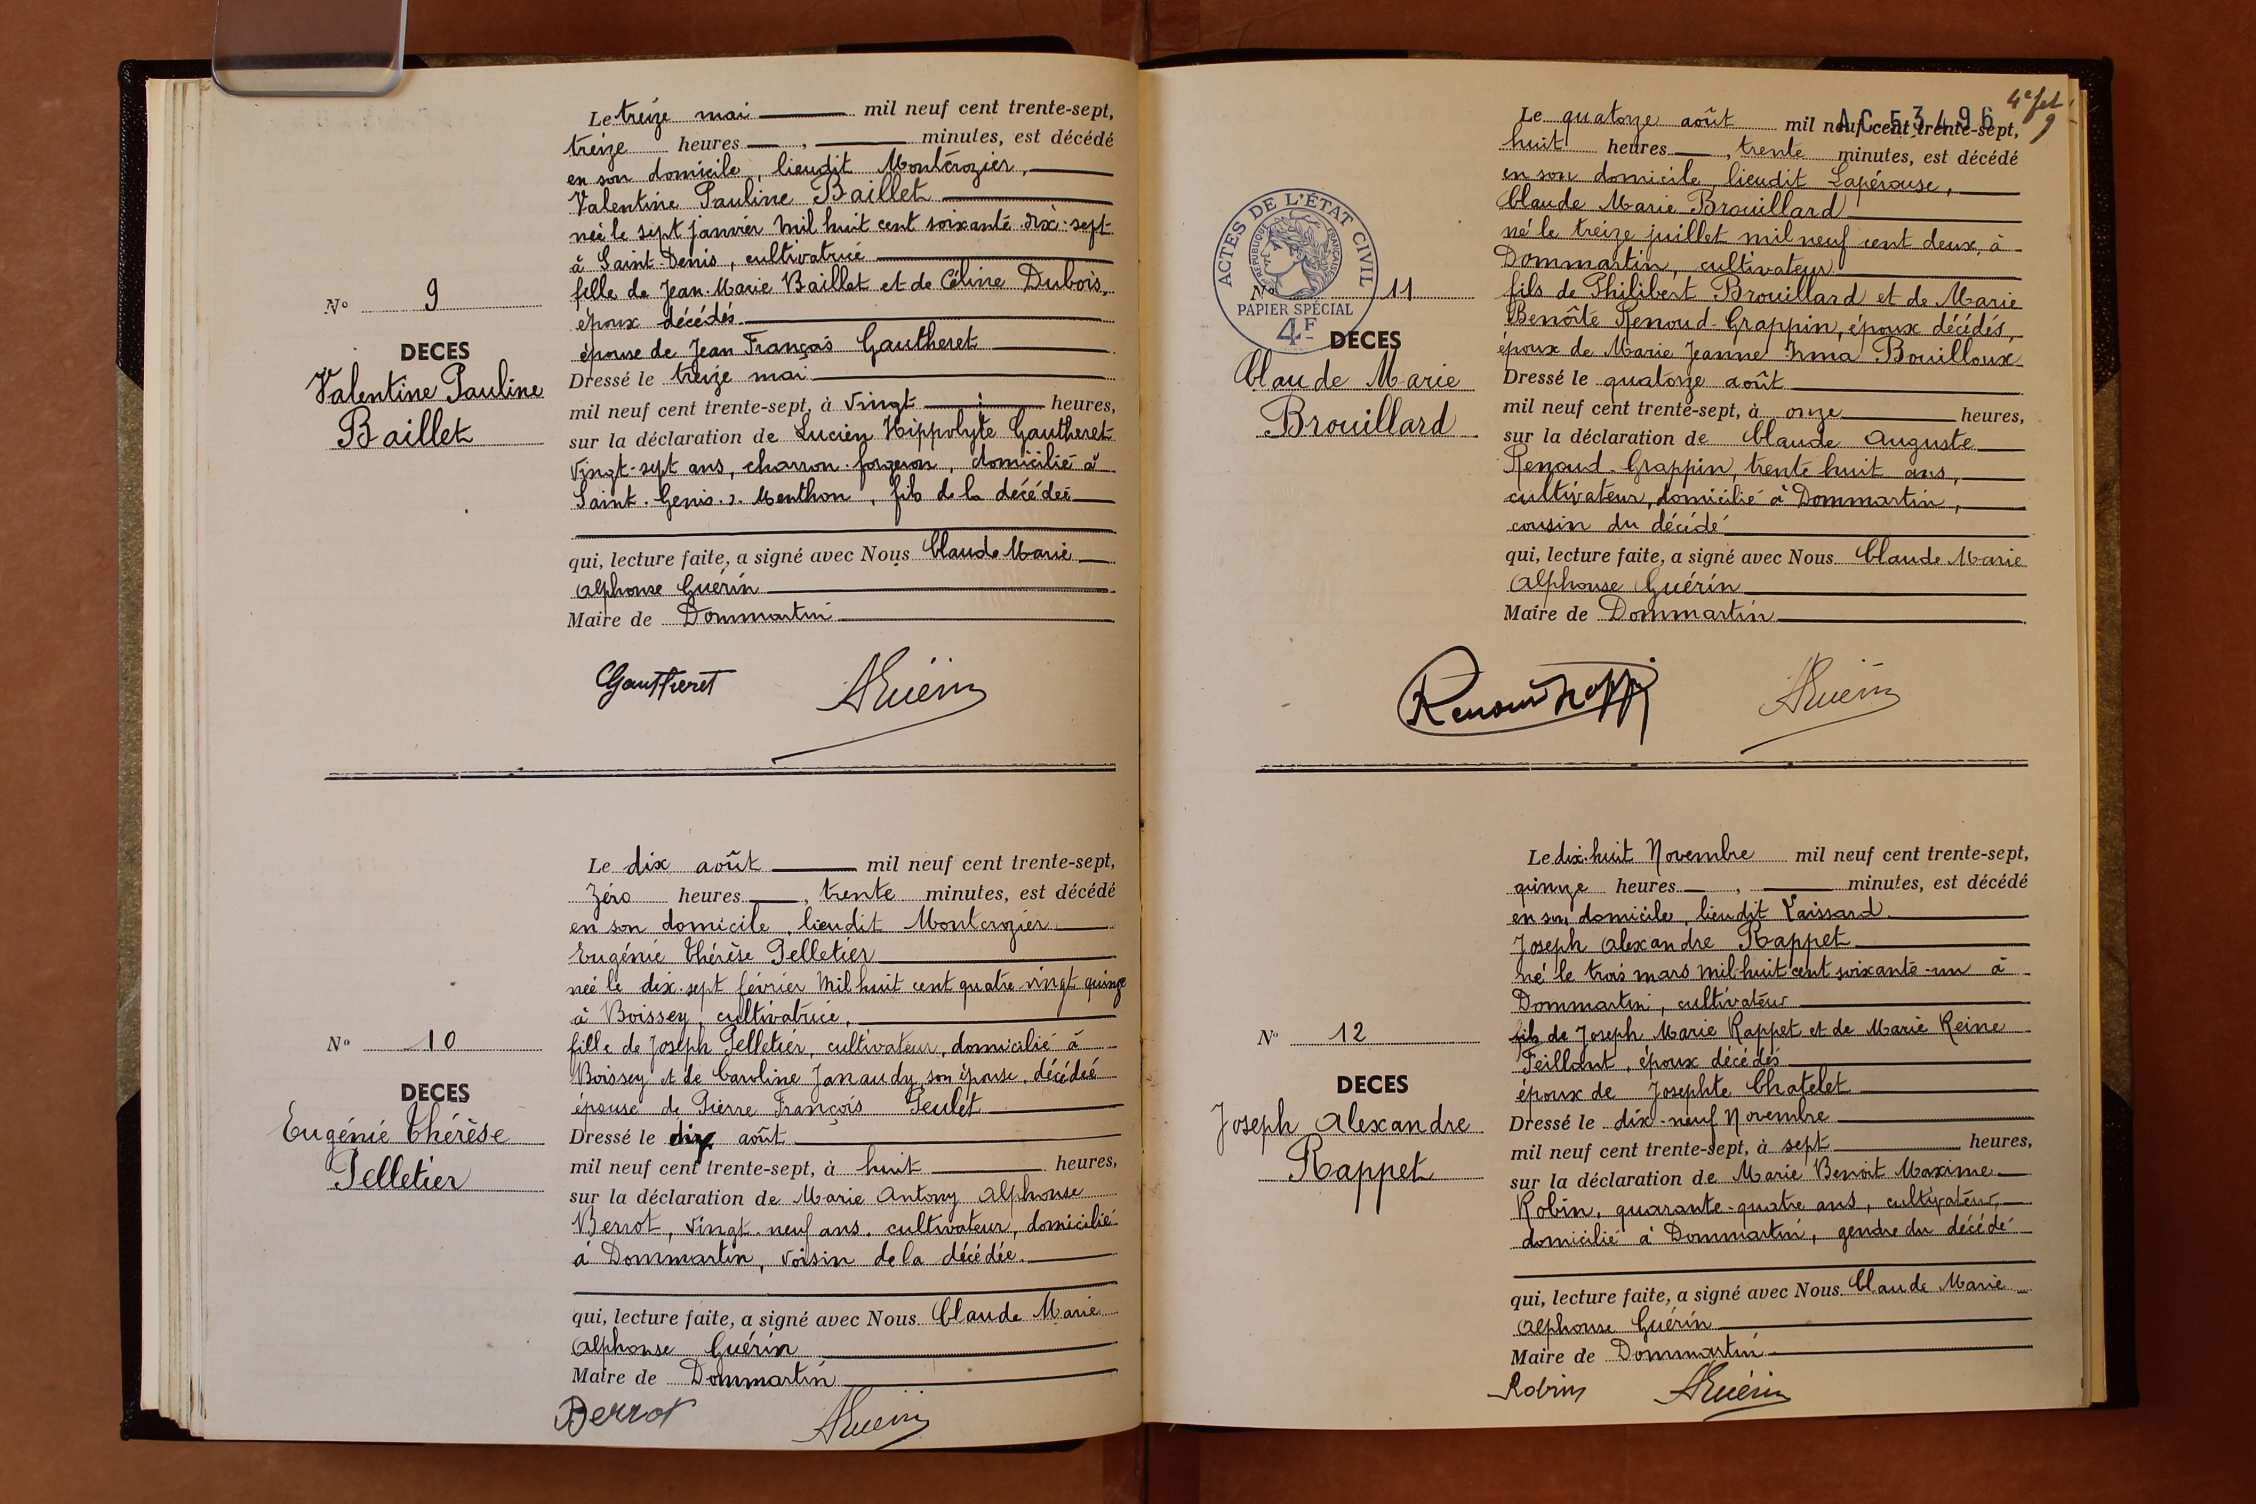 Le treize mai mil neuf cent trente-sept,
treize heures , minutes, est décédé
en son domicile, lieudit Montcrozier,
Valentine Pauline Baillet
née le sept janvier mil huit cent soixante dix-sept
à Saint-Denis, cultivatrice
fille de Jean-Marie Baillet et de Céline Dubois,
époux décédés
épouse de Jean François Gautheret
Dressé le treize mai
mil neuf cent trente-sept, à vingt heures,
sur la déclaration de Lucien Hippolyte Gautheret
vingt-sept ans, charron-forgeron, domicilié à
Saint-Genis-s-Menthon, fils de la décédée
qui, lecture faite, a signé avec Nous Claude Marie
Alphonse Guérin
Maire de Dommartin
Gautheret AGuérin
No 9
DECES
Valentine Pauline
Baillet
Le dix août mil neuf cent trente-sept,
Zéro heures , trente minutes, est décédé
en son domicile, lieudit Montcrozier
Eugénie Thérèse Pelletier
née le dix-sept février mil huit cent quatre-vingt quinze
à Boissey, cultivatrice,
fille de Joseph Pelletier, cultivateur, domicilié à
Boissey et de Caroline Janaudy son épouse, décédée
épouse de Pierre François Peulet
Dressé le dix août
mil neuf cent trente-sept, à huit heures,
sur la déclaration de Marie Antony Alphonse
Berrot, vingt-neuf ans, cultivateur, domicilié
à Dommartin, voisin de la décédée.
qui, lecture faite, a signé avec Nous Claude Marie
Alphonse Guérin
Maire de Dommartin
Berrot AGuérin
No 10
DECES
Eugénie Thérèse
Pelletier
4e fet
9
AC 53496
Le quatorze août mil neuf cent trente-sept,
huit heures , trente minutes, est décédé
en son domicile, lieudit Lapérouse,
Claude Marie Brouillard
né le treize juillet mil neuf cent deux, à
Dommartin, cultivateur
fils de Philibert Brouillard et de Marie
Benoîte Renoud-Grappin, époux décédés,
époux de Marie Jeanne Irma Bouilloux
Dressé le quatorze août
mil neuf cent trente-sept, à onze heures,
sur la déclaration de Claude Auguste
Renoud-Grappin, trente huit ans,
cultivateur, domicilié à Dommartin,
cousin du décédé
qui, lecture faite, a signé avec Nous Claude Marie
Alphonse Guérin
Maire de Dommartin
AGuérin
ACTES DE L'ÉTAT CIVIL
RÉPUBLIQUE FRANÇAISE
PAPIER SPÉCIAL
4F
No 11
DECES
Claude Marie
Brouillard
Le dix-huit Novembre mil neuf cent trente-sept,
quinze heures , minutes, est décédé
en son domicile, lieudit Vaissard
Joseph Alexandre Rappet
né le trois mars mil huit cent soixante-un à
Dommartin, cultivateur
fils de Joseph Marie Rappet et de Marie Reine
Feillant, époux décédés
époux de Josephte Chatelet
Dressé le dix-neuf Novembre
mil neuf cent trente-sept, à sept heures,
sur la déclaration de Marie Benoit Maxime
Robin, quarante-quatre ans, cultivateur,
domicilié à Dommartin, gendre du décédé
qui, lecture faite, a signé avec Nous Claude Marie
Alphonse Guérin
Maire de Dommartin
Robin AGuérin
No 12
DECES
Joseph Alexandre
Rappet